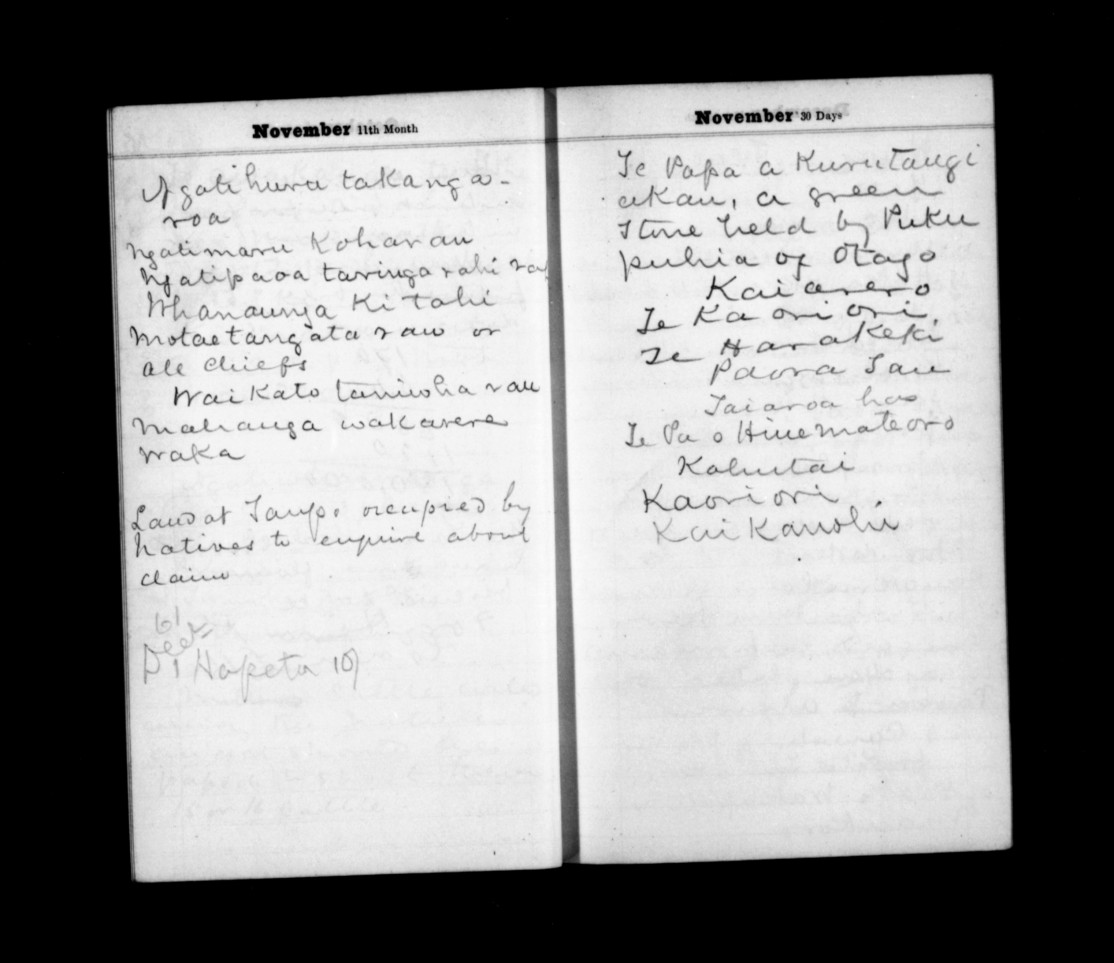 November 11th Month
Ngatihuru takanga-
roa
Ngatimaru Koharau
Ngatipaoa taringa rahi rau
Whanaunga Ki tahi
Motae tangata rau or
all chiefs
Waikato taniwha rau
Mahanga wakarere
waka
Land at Taupo occupied by
Natives to enquire about
claim
61
Hapeta 10/
November 30 Days
Te Papa a Kurutangi
akau, a green
stone held by Puku
puhia of Otago
Kaiarero
Te Kaoriori,
Te Harakeki
Paora Tau
Taiaroa has
Te Pa o Hinemateoro
Kahutai
Kaoriori
Kai Kanohi